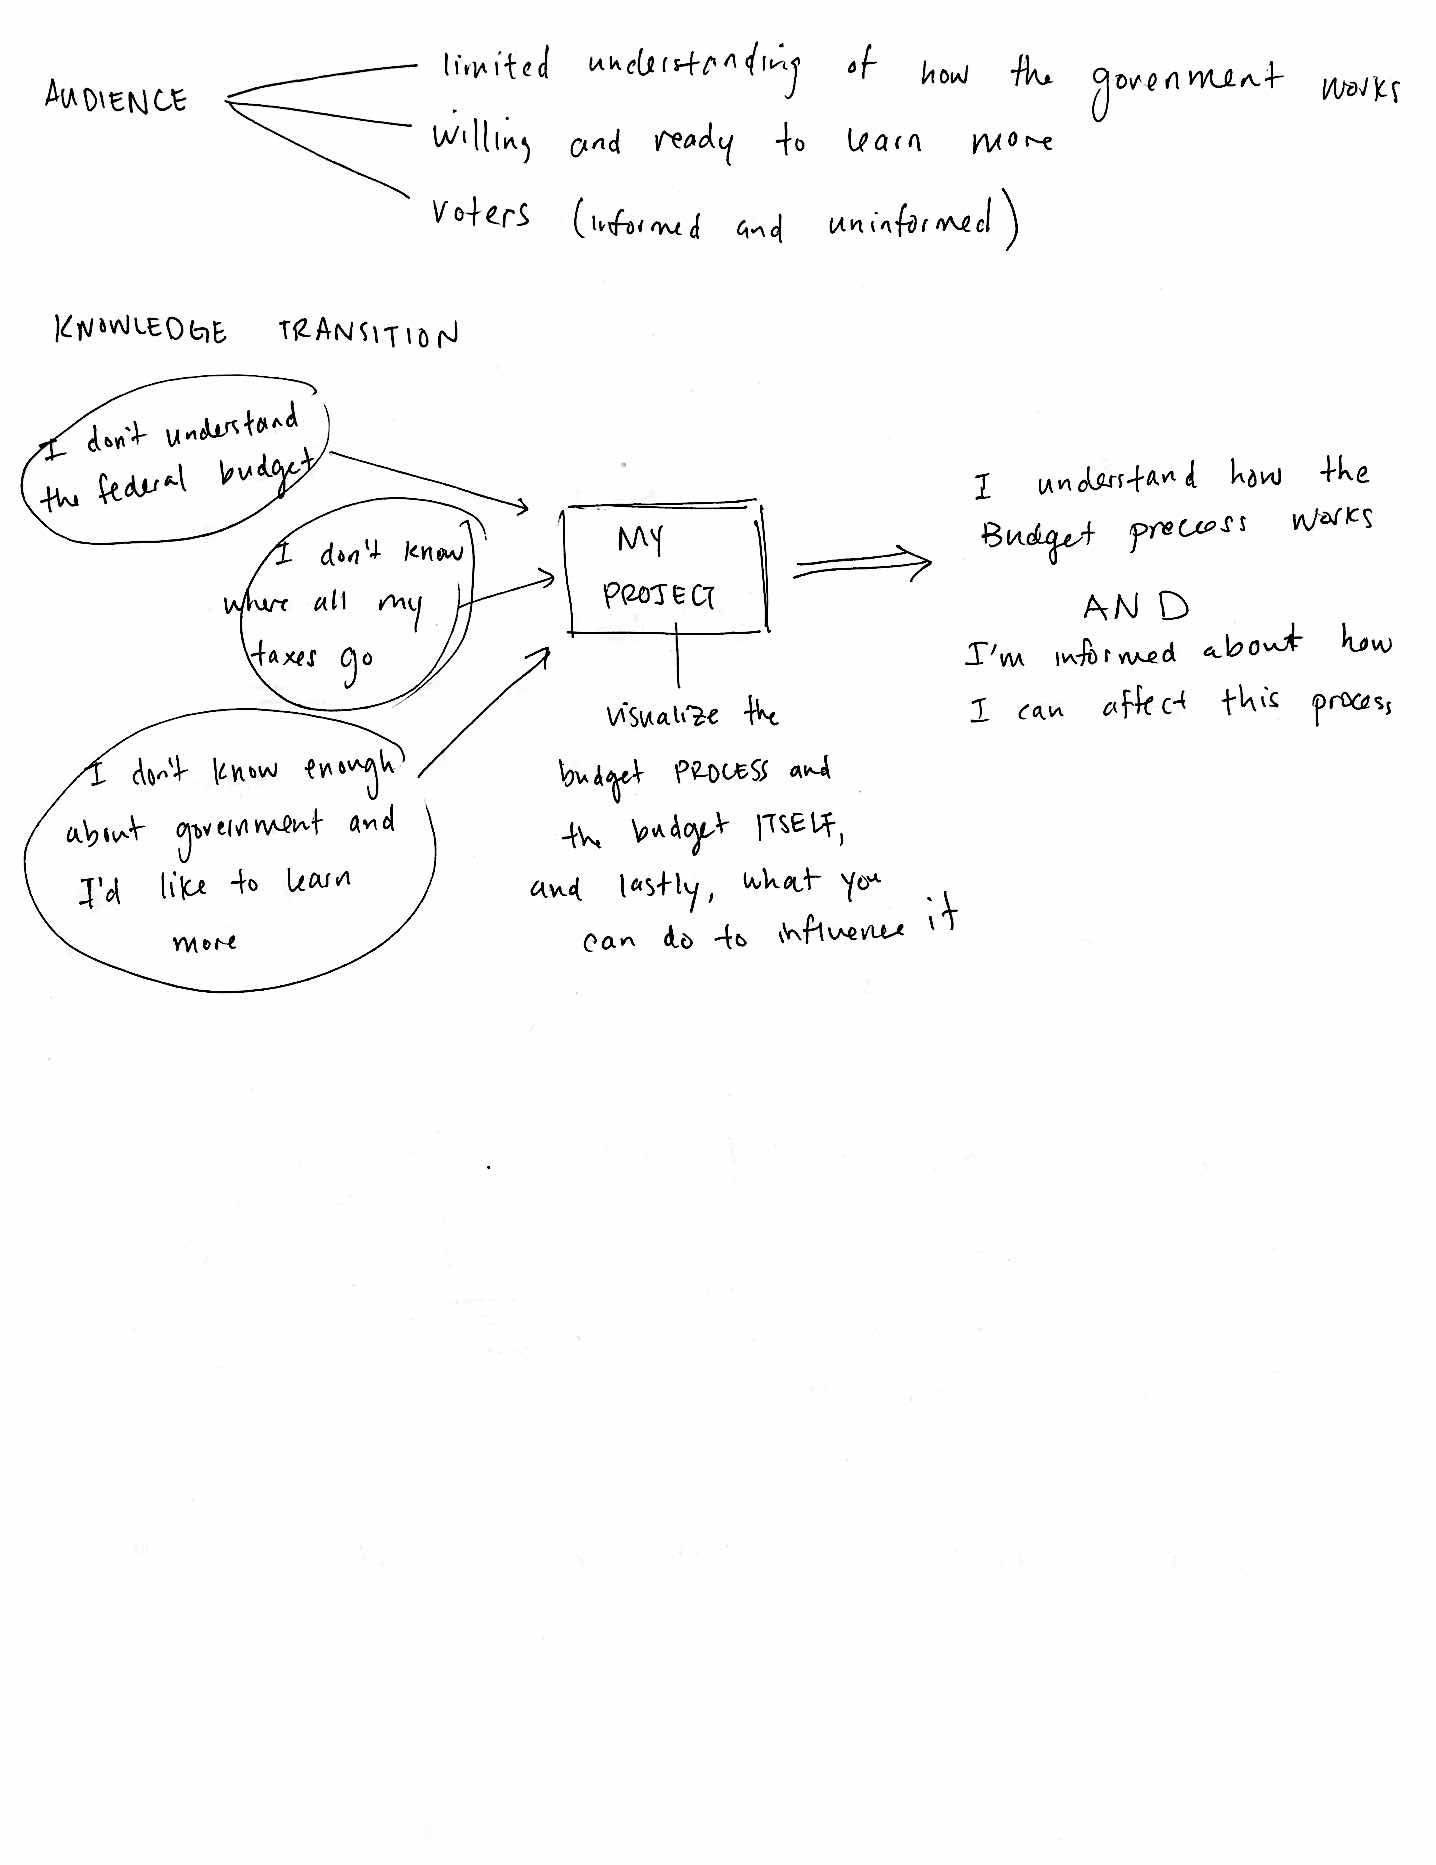 AUDIENCE
limited understanding of how the govenment works
willing and ready to learn more
voters (informed and uninformed)
KNOWLEDGE TRANSITION
I don't understand
the federal budget
I don't know
where all my
taxes go
I don't know enough
about government and
I'd like to learn
more
MY
PROJECT
visualize the
budget PROCESS and
the budget ITSELF,
and lastly, what you
can do to influence it
I understand how the
Budget proccess works
AND
I'm informed about how
I can affect this process